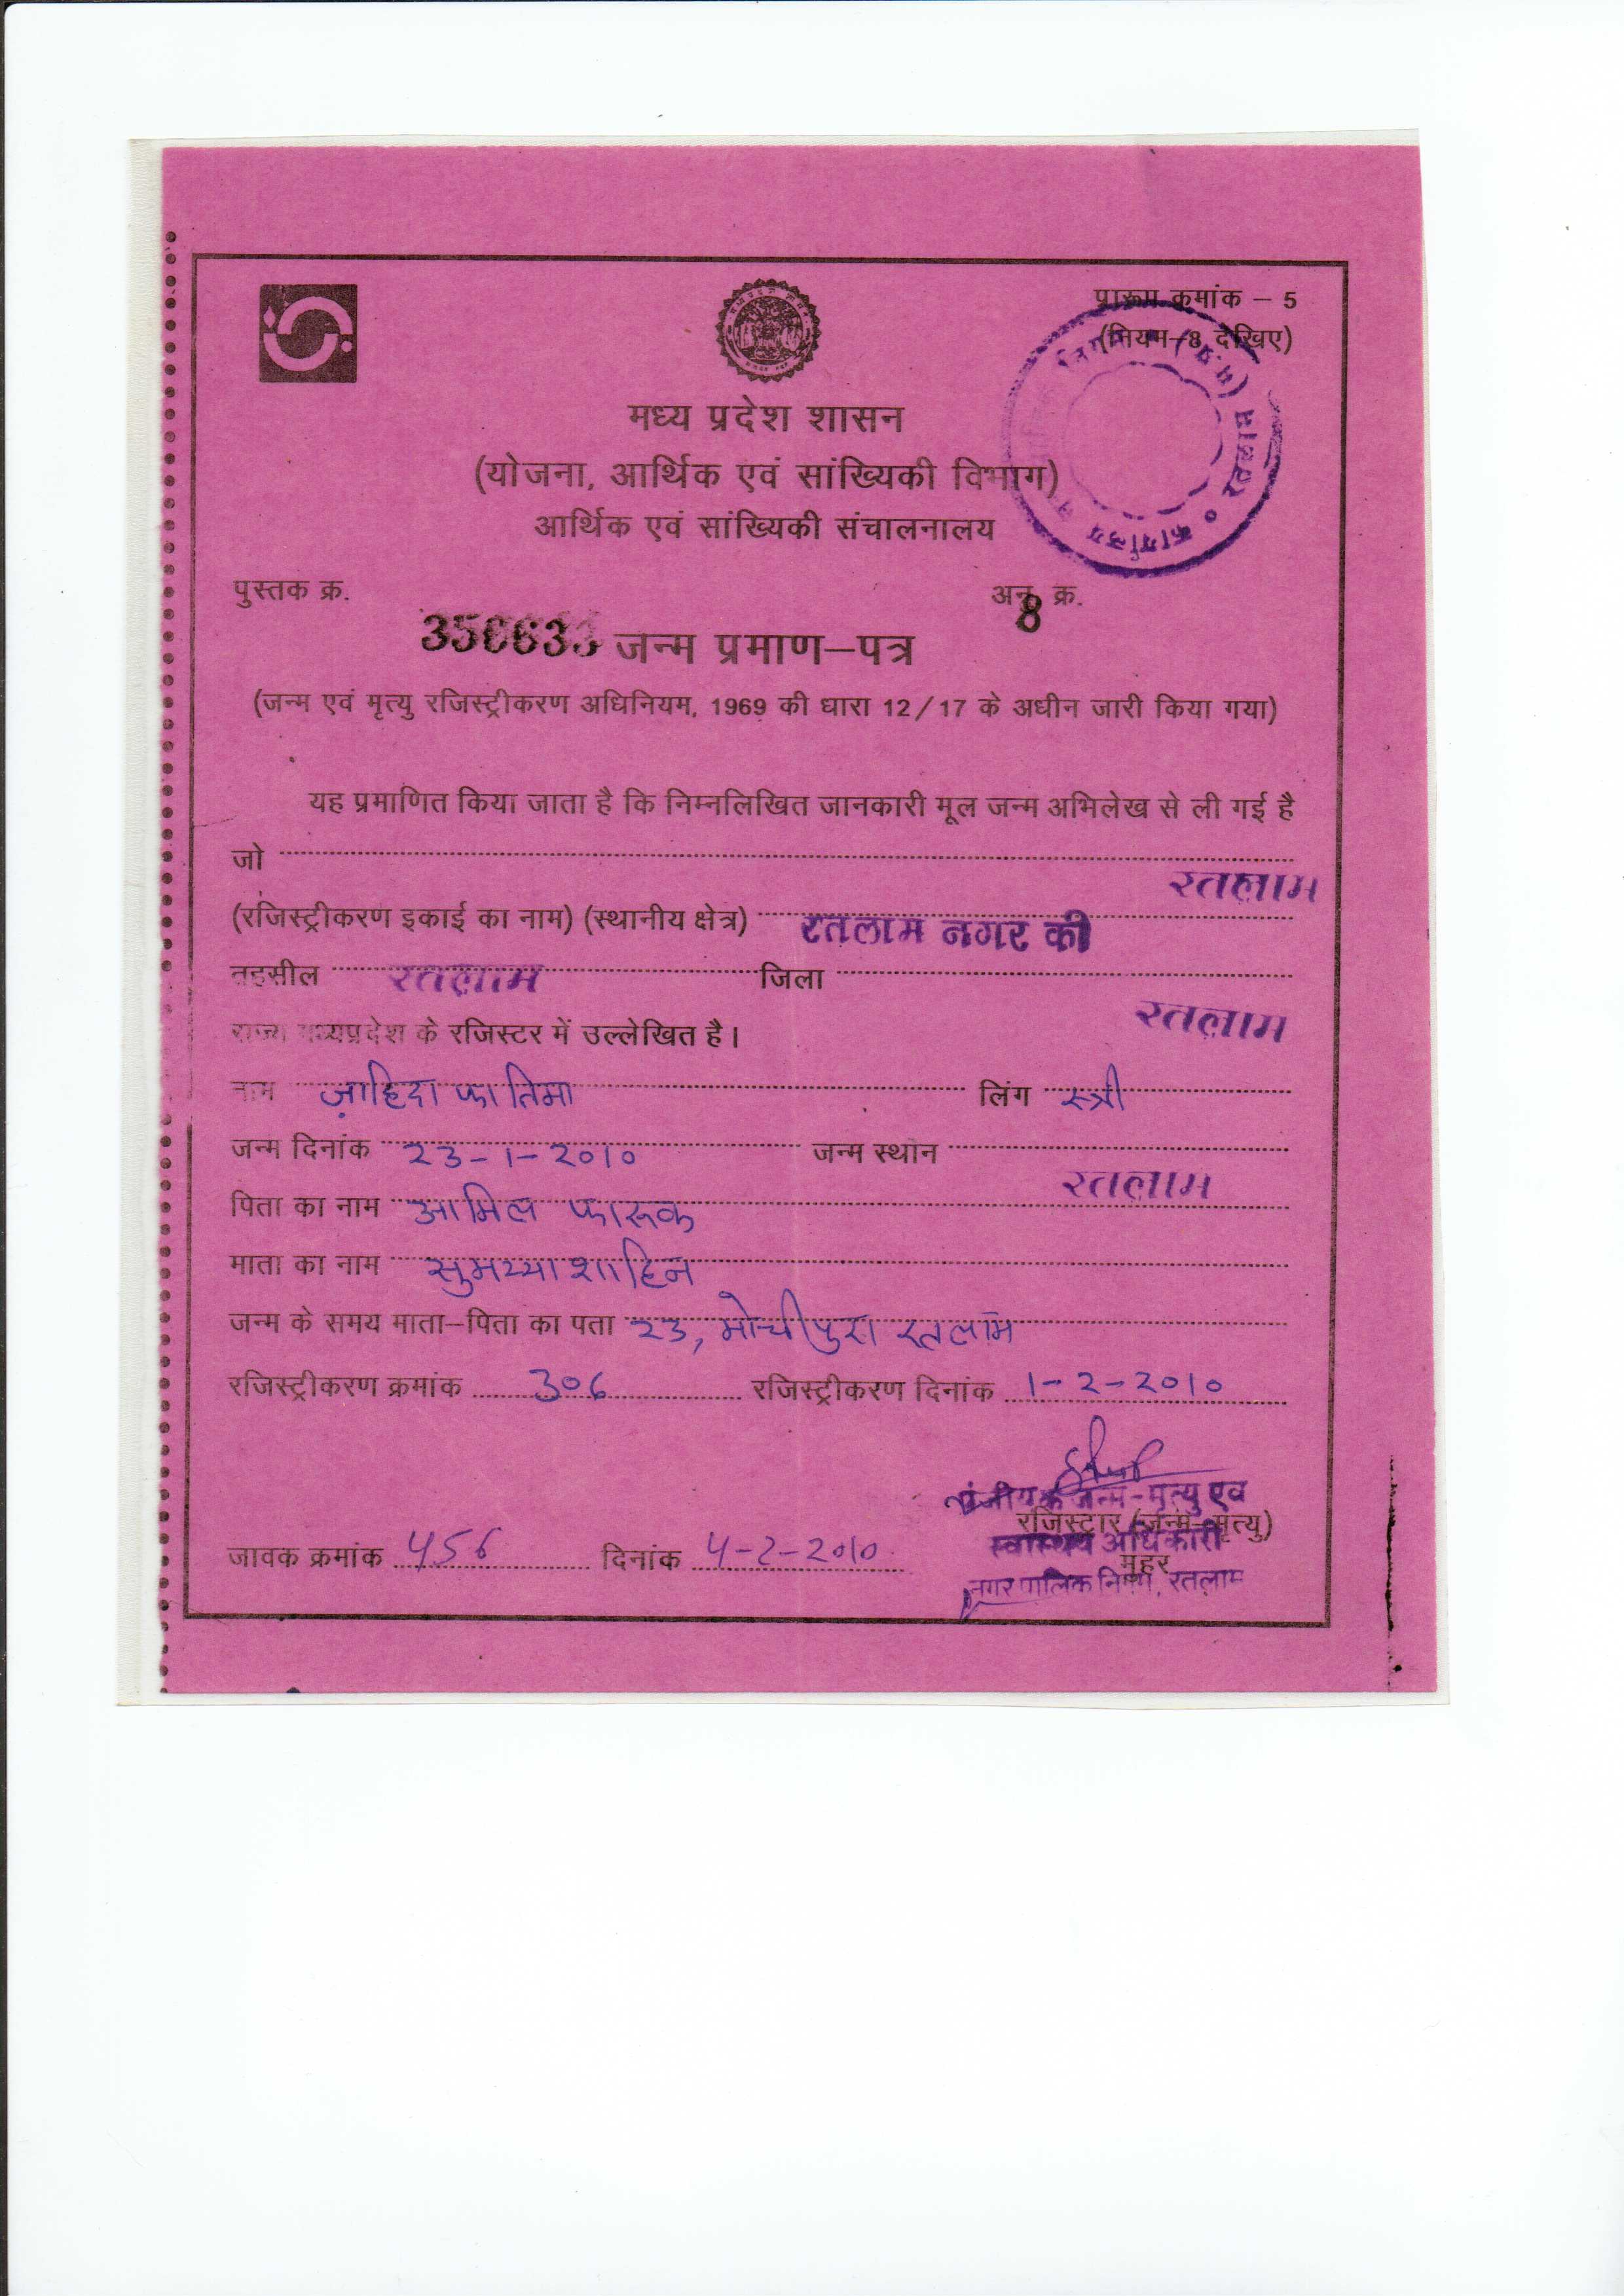 प्रारूप क्रमांक – 5
(नियम–8 देखिए)
मध्य प्रदेश शासन
(योजना, आर्थिक एवं सांख्यिकी विभाग)
आर्थिक एवं सांख्यिकी संचालनालय
रतलाम कार्यालय (म.प्र.)
पुस्तक क्र. अनु. क्र.
8
जन्म प्रमाण–पत्र
(जन्म एवं मृत्यु रजिस्ट्रीकरण अधिनियम, 1969 की धारा 12/17 के अधीन जारी किया गया)
यह प्रमाणित किया जाता है कि निम्नलिखित जानकारी मूल जन्म अभिलेख से ली गई है
जो
रतलाम
(रजिस्ट्रीकरण इकाई का नाम) (स्थानीय क्षेत्र) रतलाम नगर की
तहसील रतलाम जिला
रतलाम
राज्य मध्यप्रदेश के रजिस्टर में उल्लेखित है।
नाम ज़ाहिदा फातिमा लिंग स्त्री
जन्म दिनांक 23-1-2010 जन्म स्थान
रतलाम
पिता का नाम आमिल फारूक
माता का नाम सुमय्या शाहिन
जन्म के समय माता–पिता का पता 23, मोचीपुरा रतलाम
रजिस्ट्रीकरण क्रमांक 306 रजिस्ट्रीकरण दिनांक 1-2-2010
पंजीयक जन्म-मृत्यु एवं
रजिस्ट्रार (जन्म–मृत्यु)
स्वास्थ्य अधिकारी
जावक क्रमांक 456 दिनांक 4-2-2010
मुहर
नगर पालिक निगम, रतलाम